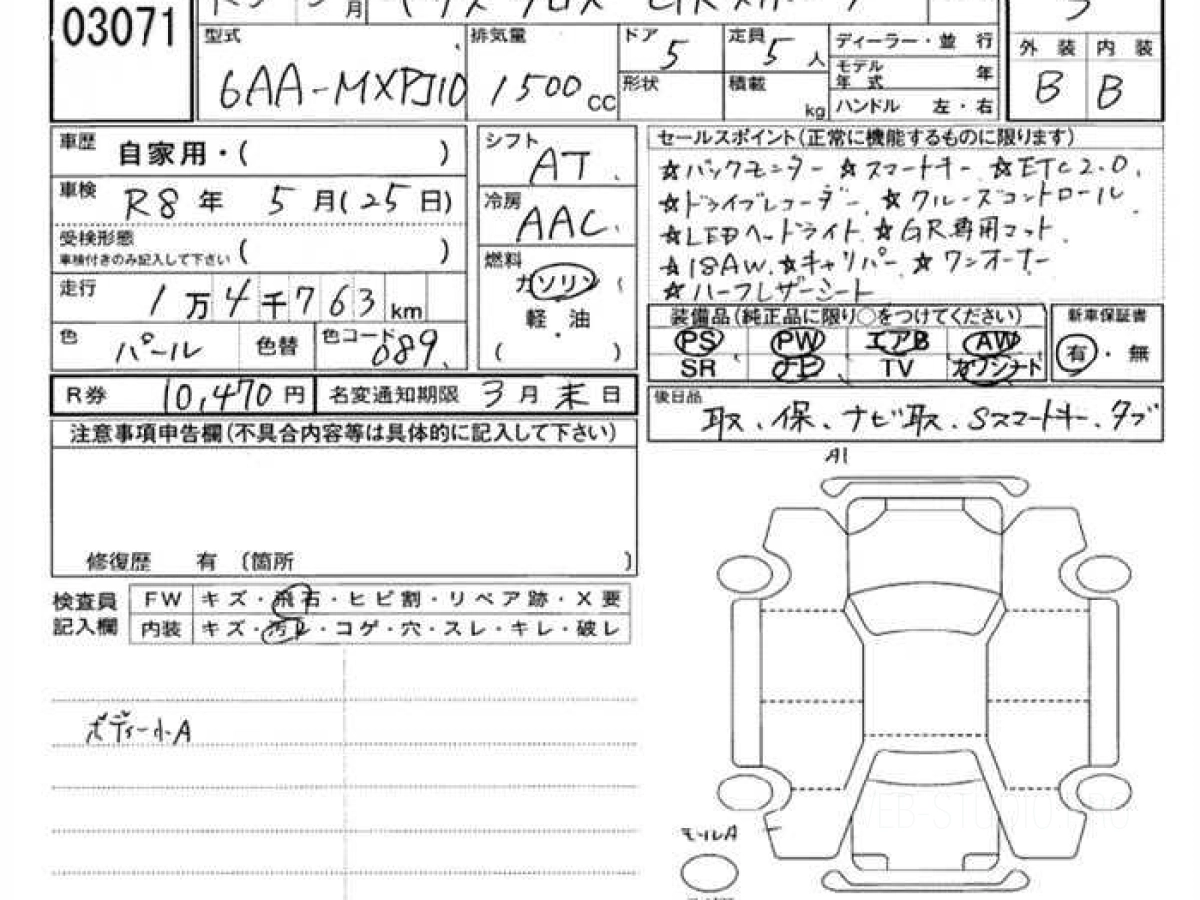 03071
月
型式 6AA-MXPJ10
排気量 1500 CC
ドア 5
形状
定員 5 人
積載 kg
ディーラー・並 行
モデル年式 年
ハンドル 左・右
外 装 B
内 装 B
車歴 自家用・( )
車検 R8 年 5 月(25日)
受検形態
車検付きのみ記入して下さい ( )
走行 1万4千763km
色 パール 色替 色コード 089
シフト AT
冷房 AAC
燃料 ガソリン
軽・油
( )
セールスポイント(正常に機能するものに限ります)
☆バックモニター ☆スマートキー ☆ETC2.0.
☆ドライブレコーダー ☆クルーズコントロール
☆LEDヘッドライト ☆GR専用マット
☆18AW ☆キャリパー ☆ワンオーナー
☆ハーフレザーシート
装備品(純正品に限り○をつけてください)
PS PW エアB AW
SR ナビ TV カワシート
新車保証書
有・無
R券 10,470 円 名変通知期限 3 月 末 日
後日品 取、保、ナビ取、Sスマートキー、タブ
注意事項申告欄(不具合内容等は具体的に記入して下さい)
修復歴 有 〔箇所 〕
検査員記入欄
FW キズ・飛石・ヒビ割・リペア跡・X要
内装 キズ・汚レ・コゲ・穴・スレ・キレ・破レ
ボディー小A
A1
モールA
WEB-STUDIO.PRO